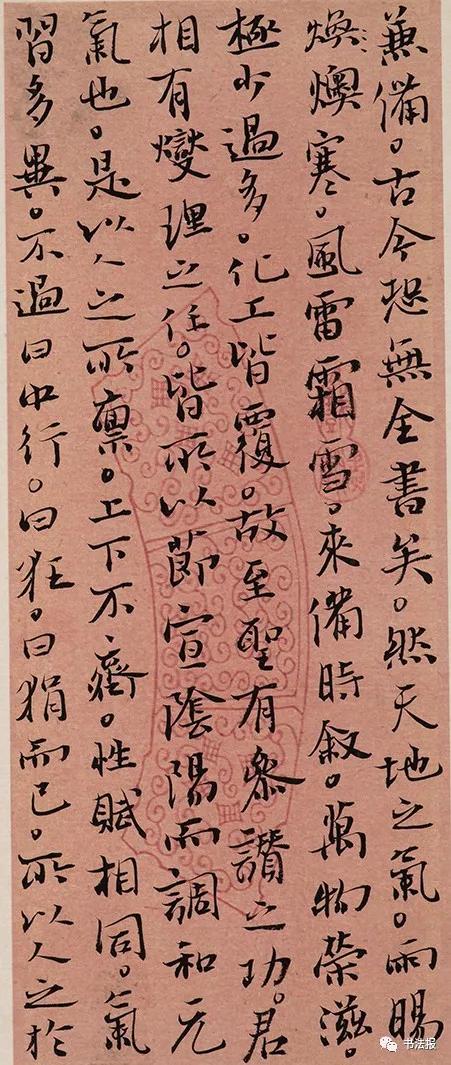 兼備。古今恐無全書矣。然天地之氣。雨暘
燠燠寒。風雷霜雪。來備時叙。萬物榮滋。
極少過多。化工皆覆。故至聖有參讚之功。君
相有燮理之任。皆所以節宣陰陽而調和元
氣也。是以人之所禀。上下不齊。性賦相同。氣
習多異。不過曰中行。曰狂。曰狷而已。所以人之於
书法报